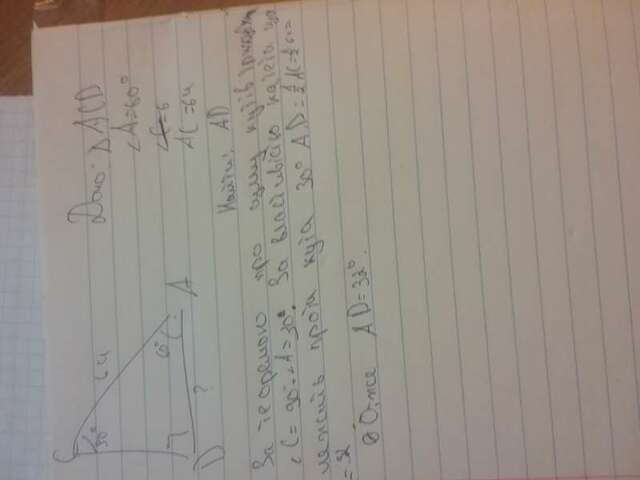 C
30°
64
60°
D
?
A
Дано: △ACD
∠A=60°
∠C=6
AC=64
Найти: AD
За теоремою про суму кутів трикутн.
∠C=90°-∠A=30°. За властивістю катета що
лежить проти кута 30° AD=1/2 AC=1/2 64=
=32
Отже AD=32°.